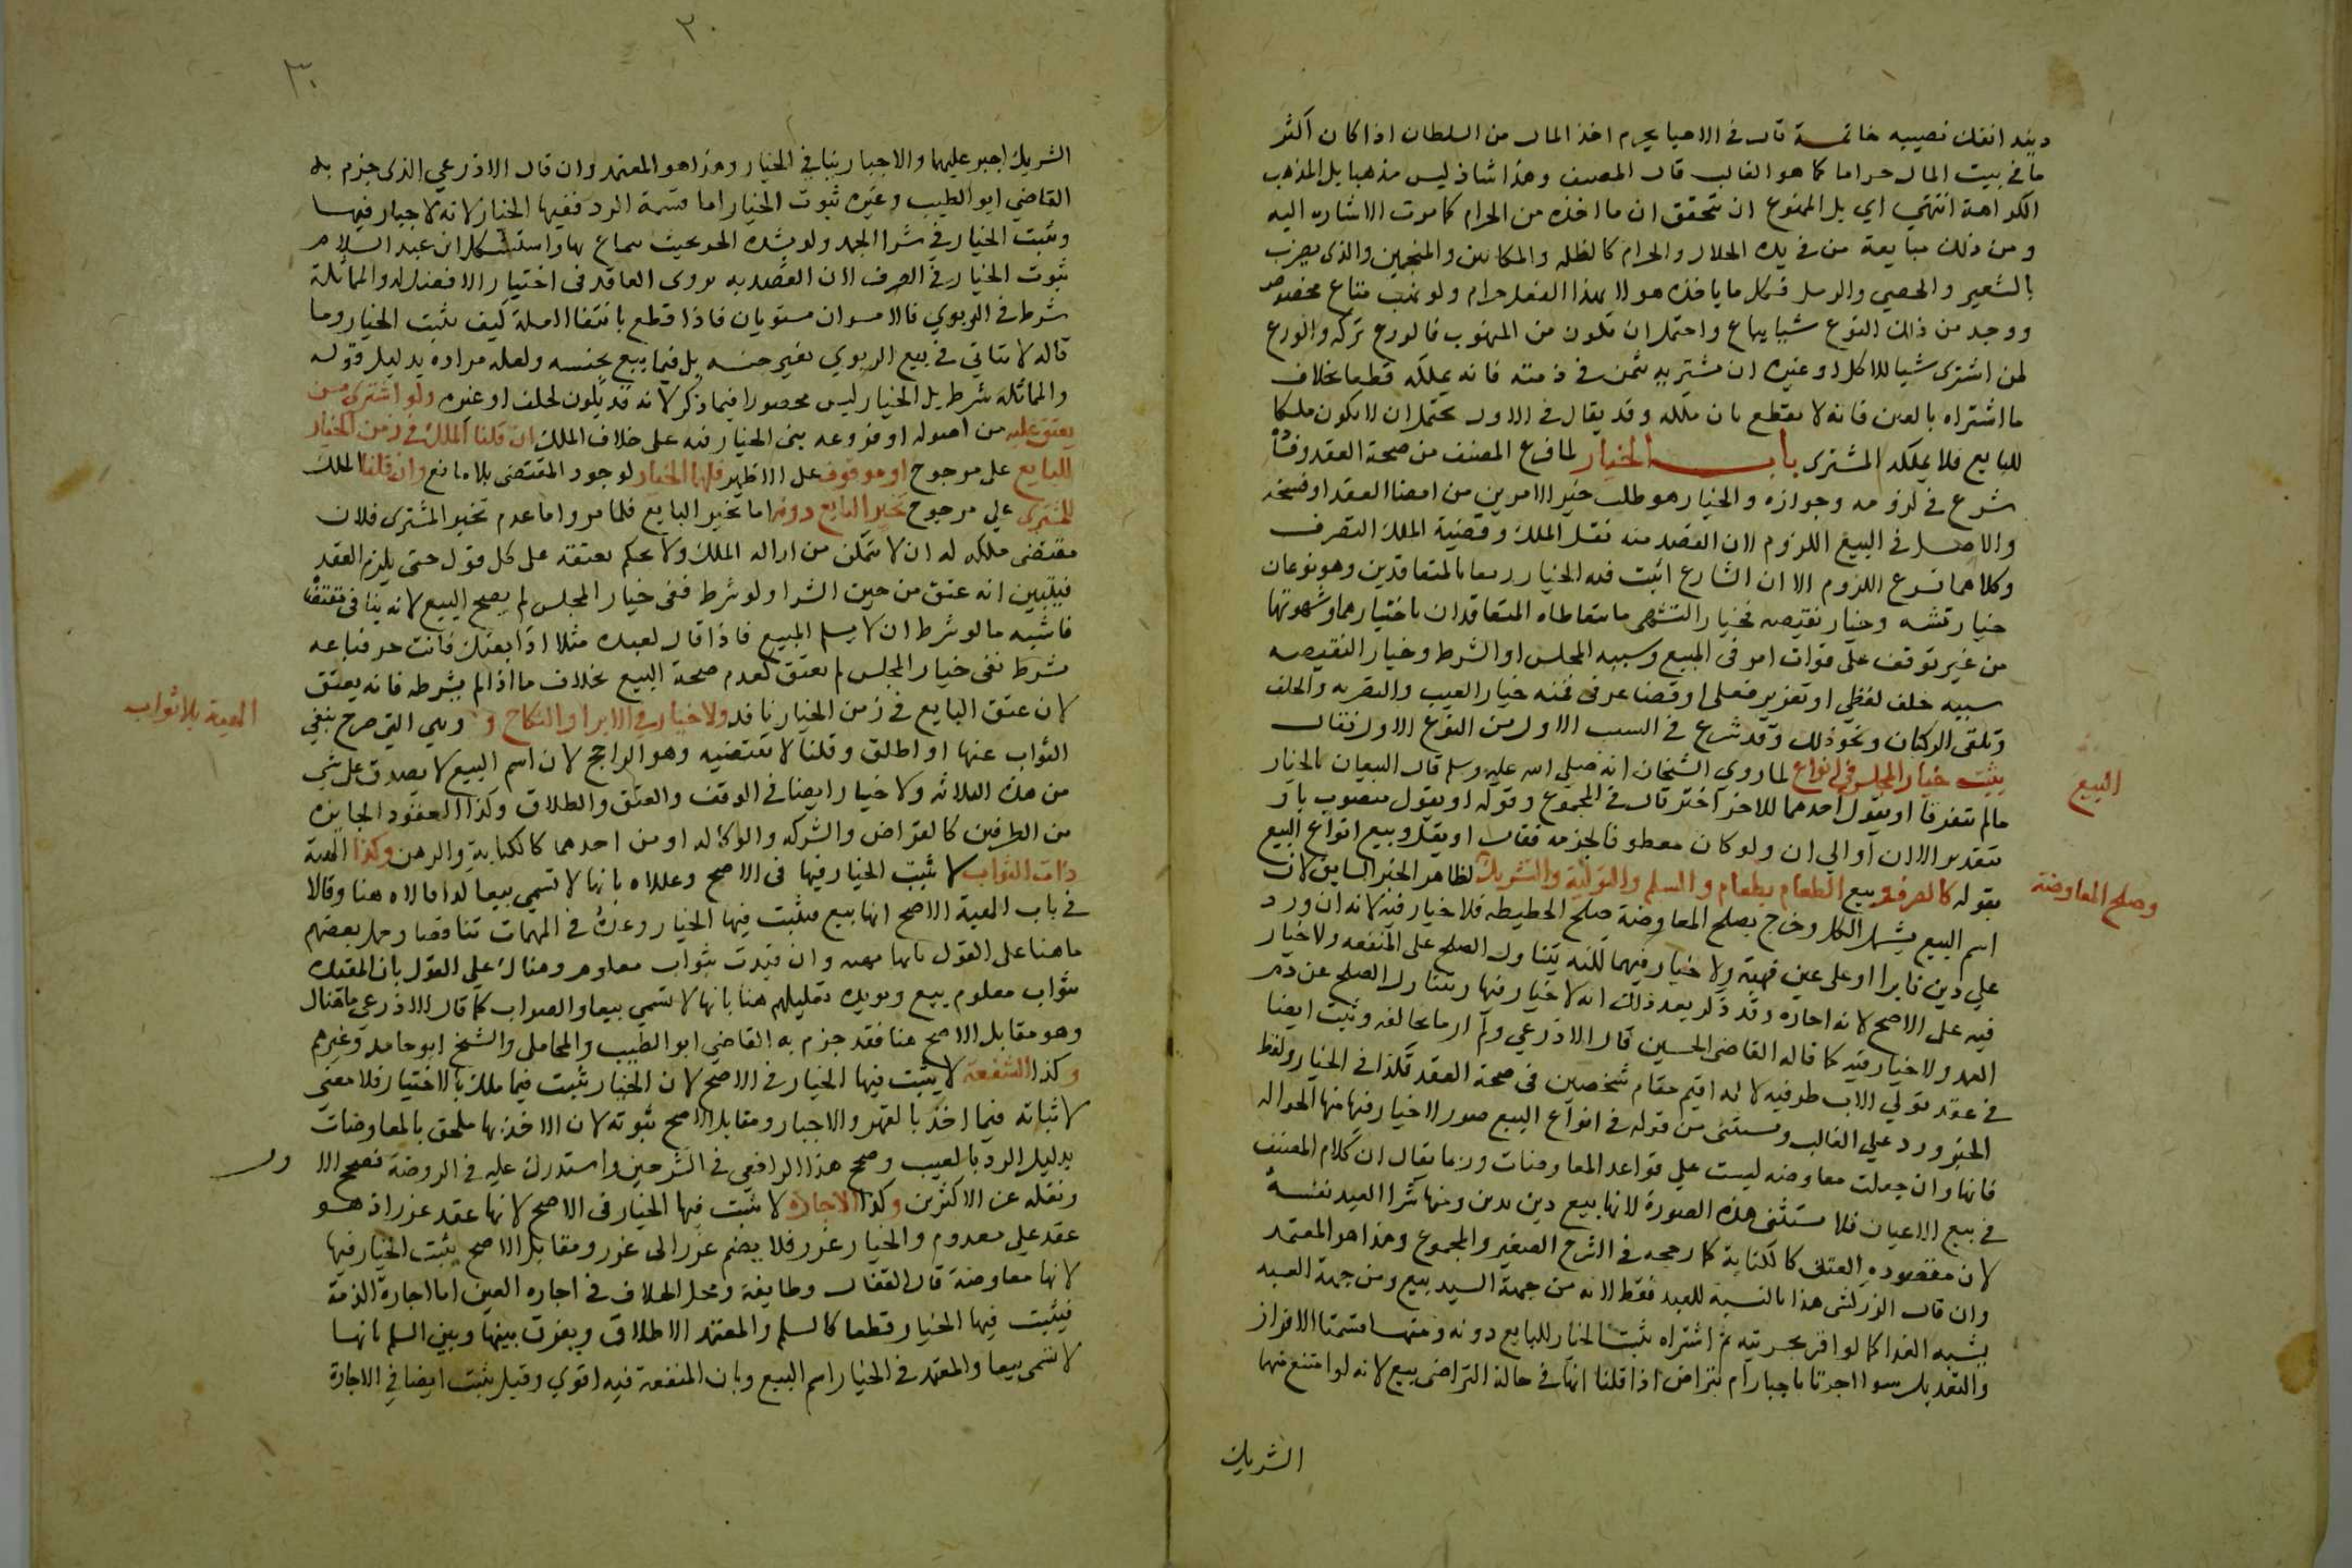 ديند انفك نصيبه خاتمة قال في الاحيا يحرم اخذ المال من السلطان اذا كان اكثر
ما في بيت المال حراما كما هو الغالب قال المصنف وهذا شاذ ليس مذهبا بل المذهب
الكراهة انتهي اي بل الممنوع ان يتحقق ان ما اخذه من الحرام كما مرت الاشاره اليه
ومن ذلك مبايعة من في يده الحلال والحرام كالظلمه والمكاسين والمنجمين والذي يضرب
بالشعير والحصي والرمل فكل ما ياخذه هولا بهذا الفعل حرام ولو نهب متاع مخصوص
ووجد من ذلك النوع شيا يباع واحتمل ان يكون من المنهوب فالورع تركه والورع
لمن اشترى شيا للاكل او غيره ان يشتريه بثمن في ذمته فانه يملكه قطعا بخلاف
ما اشتراه بالعين فانه لا يقطع بان يملكه وقد يقال في الاول يحتمل ان لا يكون ملكا
للبايع فلا يملكه المشترى باب الخيار لما فرغ المصنف من صحة العقد وفساده
شرع في لزومه وجوازه والخيار هو طلب خير الامرين من امضا العقد او فسخه
والاصل في البيع اللزوم لان القصد منه نقل الملك وقضية الملك التصرف
وكلاهما فرع اللزوم الا ان الشارع اثبت فيه الخيار رفقا بالمتعاقدين وهو نوعان
خيار تشه وخيار نقيصه فخيار التشهى ما يتعاطاه المتعاقدان باختيارهما وشهوتهما
من غير توقف على فوات امر في المبيع وسببه المجلس او الشرط وخيار النقيصه
سببه خلف لفظي او تغرير فعلى او قضا عرفي فمنه خيار العيب والتصريه والحلف
وتلقى الركبان ونحو ذلك وقد شرع في السبب الاول من النوع الاول فقال
يثبت خيار المجلس في انواع لما روي الشيخان انه صلي الله عليه وسلم قال البيعان بالخيار
البيع
مالم يتفرقا او يقول احدهما للاخر اختر قال في المجموع وقوله او يقول منصوب باو
بتقدير الا ان او الي ان ولو كان معطوفا لجزمه فقال او يقل وبيع انواع البيع
بقوله كالصرف وبيع الطعام بطعام والسلم والتولية والتشريك لظاهر الخبر السابق لان
وصلح المعاوضة
اسم البيع يشمل الكل وخرج بصلح المعاوضة صلح الحطيطه فلا خيار فيه لانه ان ورد
علي دين فابرا او على عين فهبة ولا خيار فيهما لكنه يتناول الصلح على المنفعه ولا خيار
فيه على الاصح لانه اجاره وقد ذكر بعد ذلك انه لا خيار فيها ويتناول الصلح عن دم
العمد ولا خيار فيه كما قاله القاضى الحسين قال الاذرعي ولم ار ما يخالفه ويثبت ايضا
في عقد تولي الاب طرفيه لانه اقيم مقام شخصين في صحة العقد فكذا في الخيار ولفظ
الخبر ورد علي الغالب ويستثنى من قوله في انواع البيع صور لا خيار فيها منها الحواله
فانها وان جعلت معاوضه ليست علي قواعد المعاوضات وربما يقال ان كلام المصنف
في بيع الاعيان فلا يستثنى هذه الصورة لانها بيع دين بدين ومنها شرا العبد نفسه
لان مقصوده العتق كالكتابة كما رجحه في الشرح الصغير والمجموع وهذا هو المعتمد
وان قال الزركشى هذا بالنسبة للعبد فقط لانه من جهة السيد بيع ومن جهة العبد
يشبه الفدا كما لو اقر بحريته ثم اشتراه يثبت الخيار للبايع دونه ومنها قسمتا الافراز
والتعديل سوا اجرتا باجبار ام بتراض اذا قلنا انها في حالة التراضى بيع لانه لو امتنع منهما
الشريك
٢٠
٣٠
الشريك اجبر عليهما والاجبار ينافي الخيار وهذا هو المعتمد وان قال الاذرعي الذى جزم به
القاضي ابو الطيب وغيره ثبوت الخيار اما قسمة الرد ففيها الخيار لانه لا اجبار فيها
ويثبت الخيار في شرا الجمد ولو بشدة الحر بحيث يماع بها واستشكل ابن عبد السلام
ثبوت الخيار في الصرف لان القصد به تروى العاقد فى اختيار الافضل له والمماثلة
شرط في الربوي فالامران مستويان فاذا قطع بانتفا العلة كيف يثبت الخيار وما
قاله لا يتاتي في بيع الربوي بغير جنسه بل فيما بيع بجنسه ولعله مراده بدليل قوله
والمماثلة شرط بل الخيار ليس محصورا فيما ذكر لانه قد يكون لحلف او غيره ولو اشترى من
يعتق عليه من اصوله او فروعه بني الخيار فيه على خلاف الملك ان قلنا الملك في زمن الخيار
للبايع على مرجوح او موقوف على الاظهر فلهما الخيار لوجود المقتضى بلا مانع وان قلنا الملك
للمشترى علي مرجوح تخير البايع دونه اما تخير البايع فلما مر واما عدم تخير المشترى فلان
مقتضى ملكه له ان لا يتمكن من ازاله الملك ولا يحكم بعتقه على كل قول حتى يلزم العقد
فيتبين انه عتق من حين الشرا ولو شرط نفى خيار المجلس لم يصح البيع لانه ينافى مقتضاه
فاشبه ما لو شرط ان لا يسلم المبيع فاذا قال لعبده مثلا اذا بعتك فانت حر فباعه
بشرط نفى خيار المجلس لم يعتق لعدم صحة البيع بخلاف ما اذا لم يشرطه فانه يعتق
لان عتق البايع في زمن الخيار نافد ولا خيار في الابرا والنكاح و وهي التي صرح بنفي
الهبة بلا ثواب
الثواب عنها او اطلق وقلنا لا تقتضيه وهو الراجح لان اسم البيع لا يصدق على شي
من هذه الثلاثه ولا خيار ايضا في الوقف والعتق والطلاق وكذا العقود الجايزه
من الطرفين كالقراض والشركه والوكاله او من احدهما كالكتابة والرهن وكذا الهبة
ذات الثواب لا يثبت الخيار فيها فى الاصح وعللاه بانها لا تسمى بيعا كذا قالاه هنا وقالا
في باب الهبة الاصح انها بيع فيثبت فيها الخيار وعده في المهمات تناقضا وحمل بعضهم
ما هنا على القول بانها هبه وان قيدت بثواب معلوم وهناك علي القول بان المقيده
بثواب معلوم بيع ويويده تعليلهم هنا بانها لا تسمي بيعا والصواب كما قال الاذرعي ما هناك
وهو مقابل الاصح هنا فقد جزم به القاضي ابو الطيب والمحاملى والشيخ ابو حامد وغيرهم
وكذا الشفعة لا يثبت فيها الخيار في الاصح لان الخيار يثبت فيما ملك بالاختيار فلا معنى
لاثباته فيما اخذ بالقهر والاجبار ومقابل الاصح ثبوته لان الاخذ بها ملحق بالمعاوضات
بدليل الرد بالعيب وصحح هذا الرافعي في الشرحين واستدرك عليه في الروضة فصحح الا ول
ونقله عن الاكثرين وكذا الاجارة لا يثبت فيها الخيار في الاصح لانها عقد غرر اذ هو
عقد علي معدوم والخيار غرر فلا يضم غرر الى غرر ومقابل الاصح يثبت الخيار فيها
لانها معاوضة قال القفال وطايفة ومحل الخلاف في اجاره العين اما اجارة الذمة
فيثبت فيها الخيار قطعا كالسلم والمعتمد الاطلاق ويفرق بينها وبين السلم بانها
لا تسمى بيعا والمعتمد في الخيار اسم البيع وبان المنفعة فيه اقوي وقيل يثبت ايضا في الاجارة